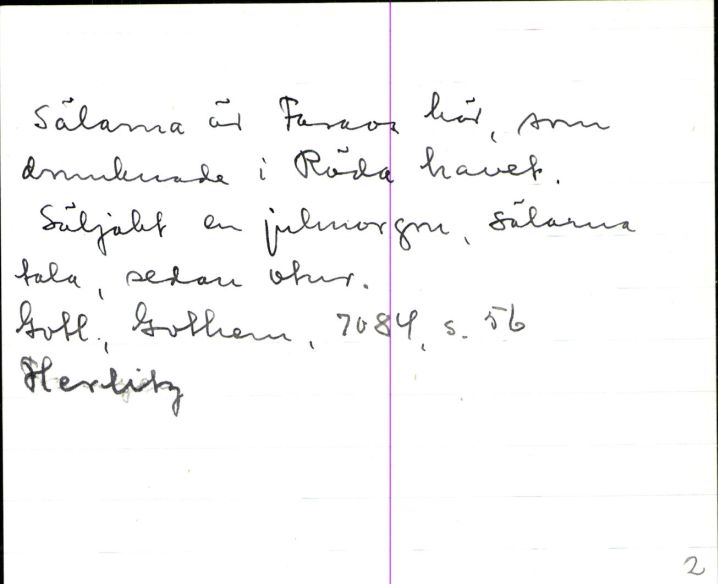 Sälarna är Faraos här, som
drunknade i Röda havet.
Säljakt en julmorgon, sälarna
tala, sedan otur.
Gotl., Gothem, 7084, s. 56
Herlitz
2